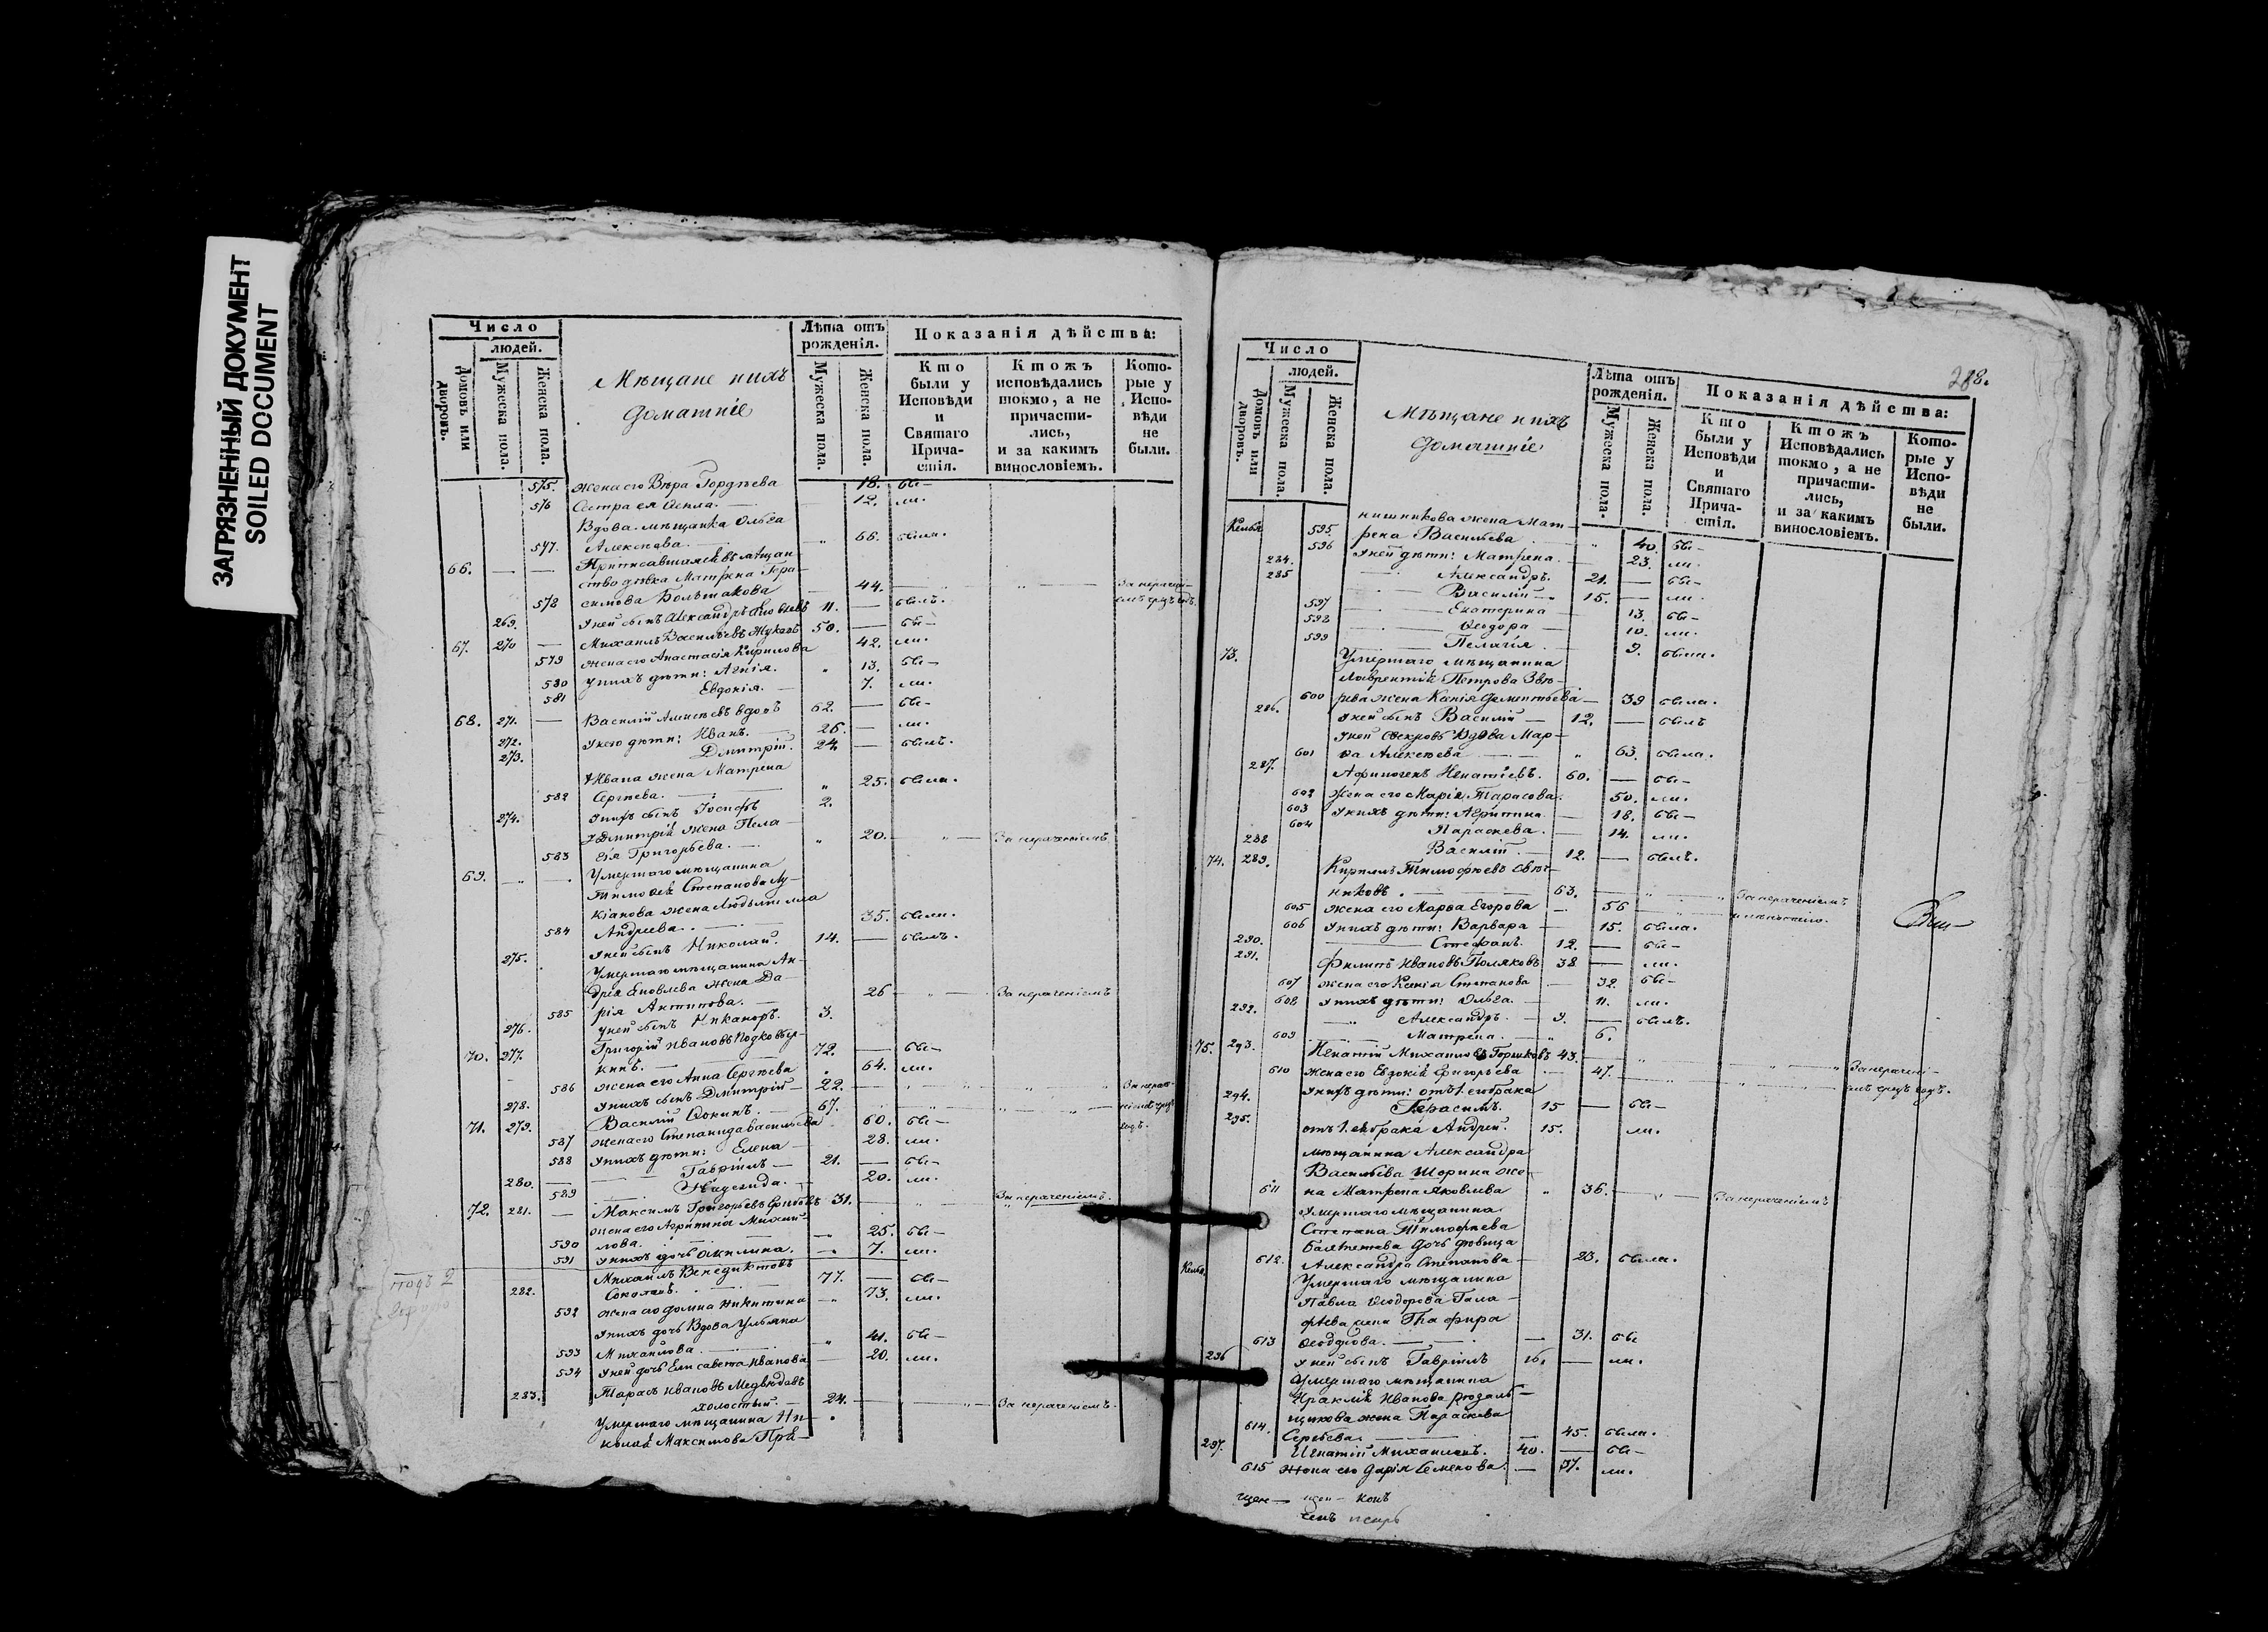 ЗАГРЯЗНЕННЫЙ ДОКУМЕНТ
SOILED DOCUMENT
Число
людей.
Домовъ или дворовъ.
Мужеска пола.
Женска пола.
Мѣщане и ихъ
домашніе
Лѣта отъ рожденія.
Мужеска пола.
Женска пола.
Показанія дѣйства:
Кто были у Исповѣди и Святаго Прича-стія.
Ктожъ исповѣдались токмо, а не причасти-лись, и за какимъ винословіемъ.
Кото-рые у Испо-вѣди не были.
575. жена его Вѣра Гордѣева 18. бы-
576 Сестра ея 12. ли.
Вдова мѣщанка Ольга
577. Алексѣева. „ 66. была.
66. Приписавшаяся въ мѣщан-
ство дѣвка Матрена Гера-
578 симова Большакова 44.
269. У ней сынъ Александръ 11. былъ.
67. 270 Михаилъ Васильевъ Жуковъ 50. бы-
579 жена его Анастасія Кирилова 42. ли.
580 У нихъ дѣти: Агнія. „ 13. бы-
581 Евдокія. 7. ли.
68. 271. Василій Алексѣевъ вдовъ 62. бы-
272. У него дѣти: Иванъ. 26. ли.
273. Дмитрій. 24. былъ.
У Ивана жена Матрена
582 Сергѣева. „ 25. была.
274. У нихъ сынъ Іосифъ 2.
У Дмитрія жена Пела-
583 гія Григорьева. „ 20. За нераченіемъ
69. Умершаго мѣщанина
Тимоѳея Степанова Лу-
кіанова жена Людьмилла
584 Андреева. 35. была.
275. У ней сынъ Николай. 14. былъ.
Умершаго мѣщанина Ан-
дрея Яковлева жена Да-
585 рія Антипова. 26 За нераченіемъ
276. У ней сынъ Никаноръ. 3.
70. 277. Григорій Ивановъ Подковыр-
кинъ. 72. бы-
586 жена его Анна Сергѣева 64. ли.
278. У нихъ сынъ Дмитрій 22.
71. 279. Василій Сонинъ. 67.
587 жена его Степанида Васильева 60. бы-
588 У нихъ дѣти: Елена 28. ли.
280. Гавріилъ 21. бы-
589 Надежда. 20. ли.
72. 281. Максимъ Григорьевъ 31. За нераченіемъ.
жена его Агрипина Михаи-
590 лова. 25. бы-
591 У нихъ дочь Акилина. 7. ли.
Михаилъ Венедиктовъ
282. Соколовъ. 77. бы-
592 жена его Домна Никитина 73. ли.
У нихъ дочь Вдова Ульяна
593 Михаилова. „ 41. бы-
594 У ней дочь Елисавета Иванова 20. ли.
283. Тарасъ Ивановъ Медвѣдевъ
холостый. 24. За нераченіемъ.
Умершаго мѣщанина Ни-
колая Максимова Пря-
288.
Число
людей.
Домовъ или дворовъ.
Мужеска пола.
Женска пола.
Мѣщане и ихъ
домашніе
Лѣта отъ рожденія.
Мужеска пола.
Женска пола.
Показанія дѣйства:
Кто были у Исповѣди и Святаго Прича-стія.
Ктожъ Исповѣдались токмо, а не причасти-лись, и за какимъ винословіемъ.
Кото-рые у Испо-вѣди не были.
нишникова жена Мат-
595 рена Васильева „ 40. бы-
596 У ней дѣти: Матрена. 23. ли.
284. Александръ. 21. бы-
285 Василій 15. ли.
597 Екатерина 13. бы-
598 Ѳеодора 10. ли.
599 Пелагія 9. была.
73. Умершаго мѣщанина
Лаврентія Петрова Звѣ-
600 рева жена Ксенія Дементьева 39 была.
286. У ней сынъ Василій 12. былъ
У ней свекровь Вдова Мар-
601 ѳа Алексѣева „ 63. была.
287. Афиногенъ Игнатіевъ. 60. бы-
602 жена его Марія Тарасова. 50. ли.
603 У нихъ дѣти: Агрипина 18. бы-
604 Параскева. 14. ли.
288 Василій 12. былъ.
74. 289. Кириллъ Тимофѣевъ
никовъ. 63. За нераченіемъ
605 жена его Марѳа Егорова 56
606 У нихъ дѣти: Варвара 15. была.
290. Стефанъ. 12. бы-
291. Филипъ Ивановъ Поляковъ 38 ли.
607 жена его Ксенія Степанова 32. бы-
608 У нихъ дѣти: Ольга. 11. ли.
292. Александръ. 9. былъ.
609 Матрена. „ 6.
75. 293. Игнатій Михайловъ Горшковъ 43.
610 жена его Евдокія Григорьева 47.
294. У нихъ дѣти: отъ 1. его брака
Герасимъ. 15 бы-
295. отъ 1. ея брака Андрей. 15. ли.
мѣщанина Александра
Васильева Шорина же-
611 на Матрена Яковлева „ 36. За нераченіемъ
Умершаго мѣщанина
Степана Тимофѣева
дочь дѣвица
612. Александра Степанова 23. была.
Умершаго мѣщанина
Павла Ѳеодорова Гала-
613 Ѳеодорова. 31. бы
296 У ней сынъ Гавріилъ 16. ли.
Умершаго мѣщанина
Ираклія Иванова
щикова жена Параскева
614. Сергѣева. 45. была.
297. Игнатій Михаиловъ. 40. бы-
615 жена его Дарія Семенова. 37. ли.